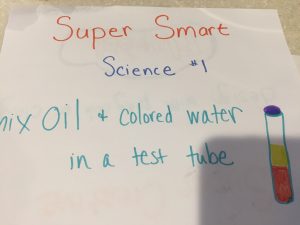 Super Smart
Science #1
mix Oil & colored water
in a test tube